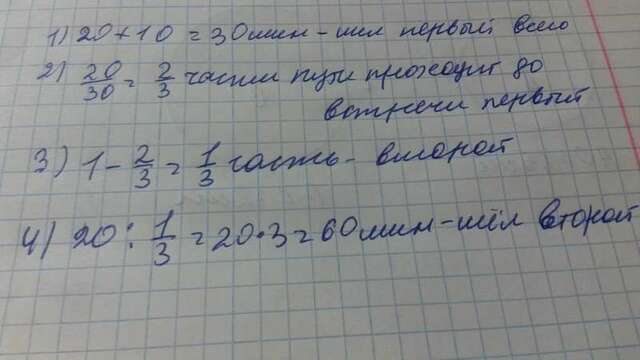 1) 20 + 10 = 30 мин - шел первый всего
2) 20/30 = 2/3 части пути проходит до
встречи первый
3) 1 - 2/3 = 1/3 часть - второй
4) 20 : 1/3 = 20·3 = 60 мин - шёл второй